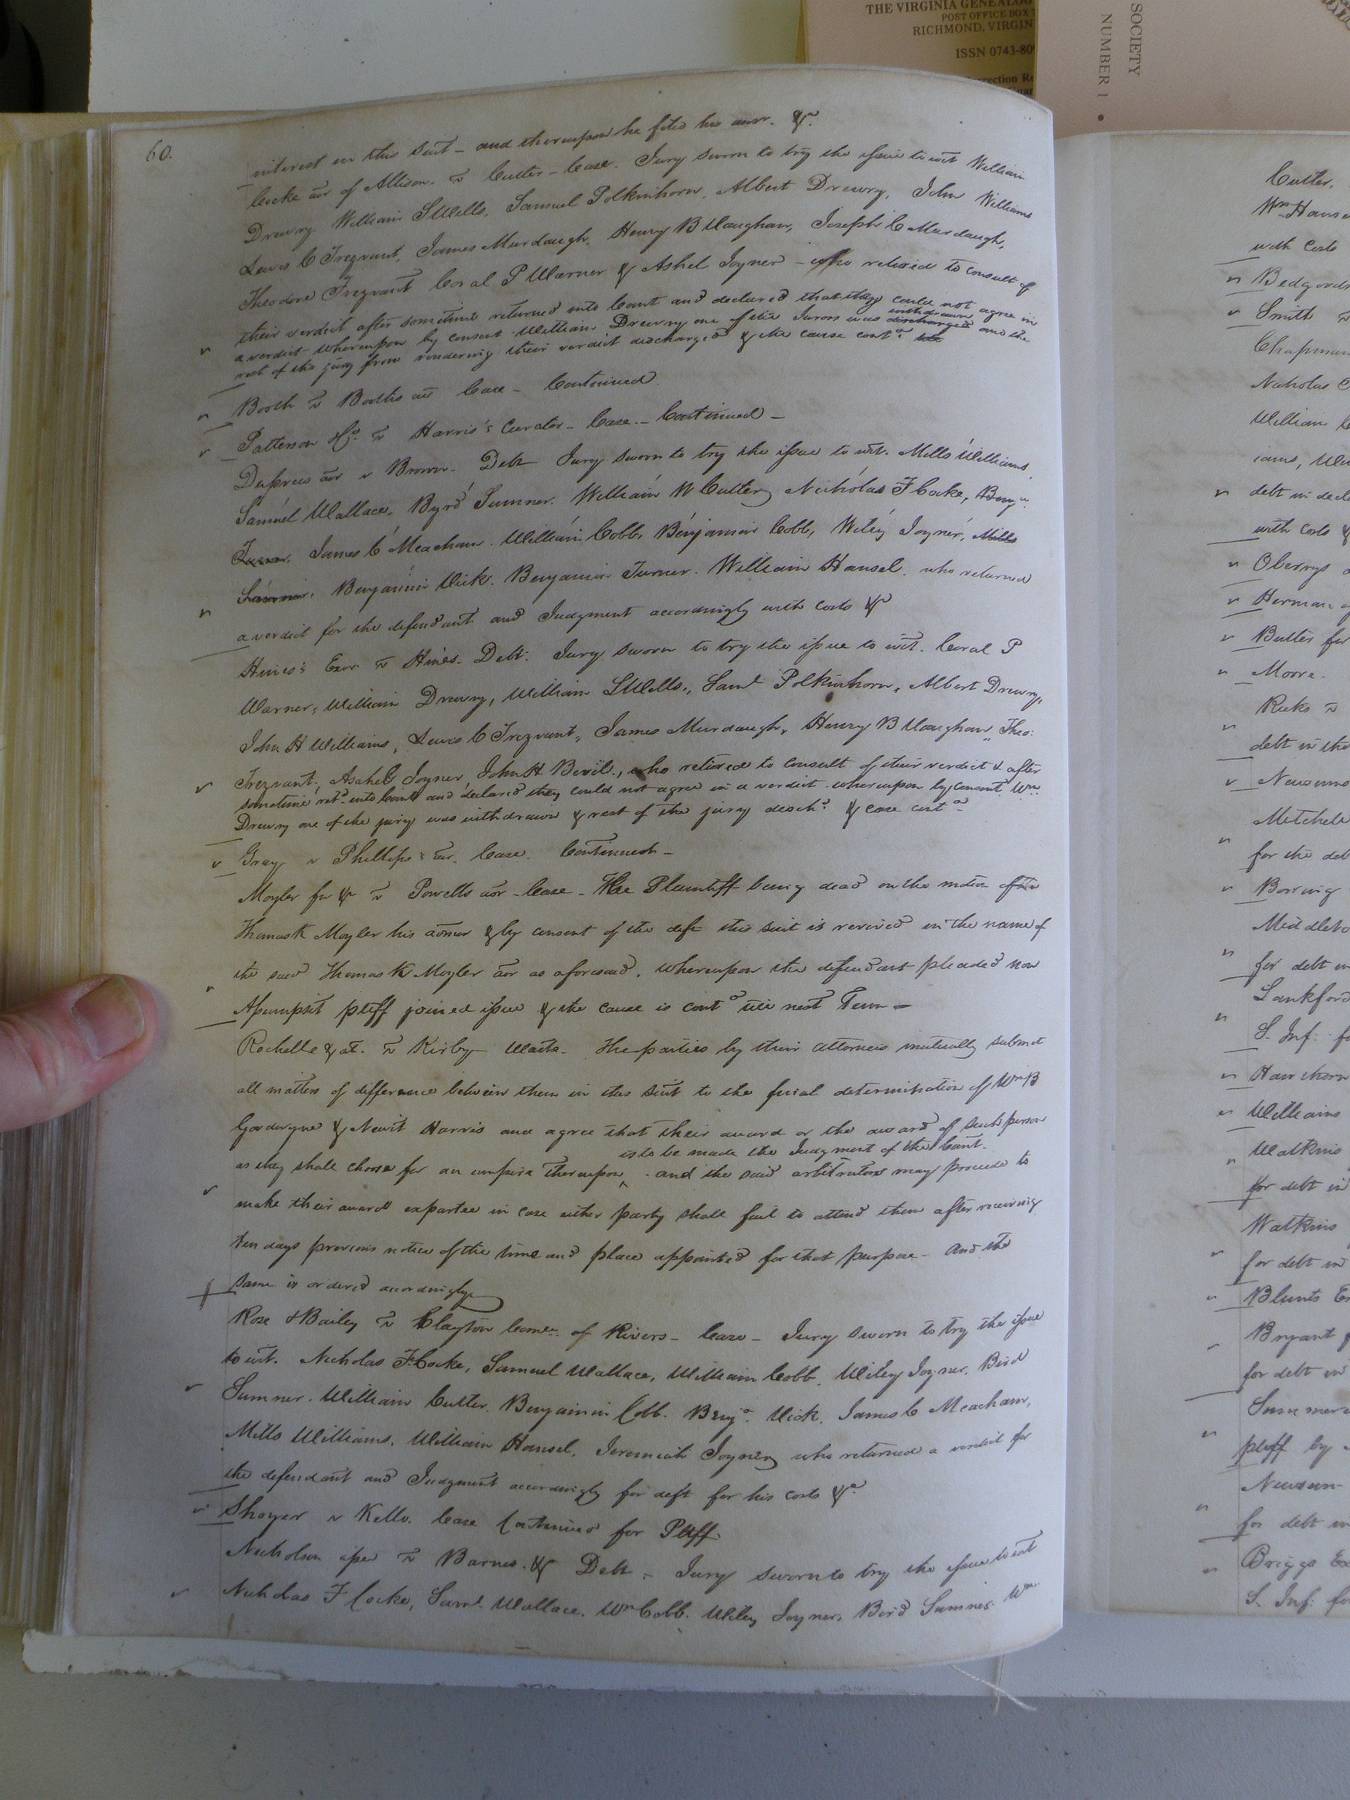 THE VIRGINIA GENEALO
POST OFFICE BOX
RICHMOND, VIRGIN
ISSN 0743-809
SOCIETY
NUMBER 1
60.
interest in this suit – and thereupon he filed his answr. &c.
Cocke adr of Allison. vs Cutler – Case. Jury sworn to try the issue to wit William
Drewry William S Wells, Samuel Polkinhorn, Albert Drewry, John Williams
Lewis C Trezvant, James Murdaugh, Henry B Vaughan, Joseph C Murdaugh,
Theodore Trezvant Coral P Warner & Ashel Joyner – who retired to consult of
their verdict after sometime returned into Court and declared that they could not agree in
a verdict whereupon by consent William Drewry one of the Jurors was discharged withdrawn and the
rest of the jury from rendering their verdict discharged & the cause contd
Booth vs Booths adr Case – Continued
Patterson & Co. vs Harris's Curator – Case – Continued –
Duprees adr v Brown – Debt Jury sworn to try the issue to wit. Mills Williams,
Samuel Wallace, Byrd Sumner. William W Cutler, Nicholas F Cocke, Benjn
James C Meacham. William Cobb, Benjamin Cobb, Wiley Joyner, Mills
Sumner, Benjamin Vick. Benjamin Turner. William Hansel. who returned
a verdict for the defendant and Judgment accordingly with costs &c
Hines's Exor vs Hines. Debt. Jury sworn to try the issue to wit. Coral P
Warner, William Drewry, William S Wells, Saml Polkinhorn, Albert Drewry,
John H Williams, Lewis C Trezvant, James Murdaugh, Henry B Vaughan, Theo:
Trezvant, Asahel Joyner, John H Bevil, who retired to consult of their verdict & after
sometime retd into Court and declared they could not agree in a verdict whereupon by consent Wm
Drewry one of the jury was withdrawn & rest of the jury disch.d & case contd
Gray v Phillips adr. Case. Continued –
Moyler for &c vs Powells adr – Case – The Plaintiff being dead on the motion of
Thomas K Moyler his admor & by consent of the deft this suit is revived in the name of
the said Thomas K Moyler adr as aforesaid, whereupon the defendant pleaded non
Assumpsit pltff joined issue & the cause is contd till next Term –
Rochelle & al. vs Kirby Waste – The parties by their attornies mutually submit
all matters of difference between them in this suit to the final determination of Wm B
Goodwyn & Newit Harris and agree that their award or the award of such person
as they shall choose for an umpire thereupon ^ is to be made the Judgment of the Court. and the said arbitrators may proceed to
make their award expartee in case either party shall fail to attend them after receiving
ten days previous notice of the time and place appointed for that purpose – and the
same is ordered accordingly
Rose & Bailey vs Clayton Comer. of Rivers – Case – Jury sworn to try the issue
to wit. Nicholas F. Cocke, Samuel Wallace, William Cobb, Wiley Joyner, Bird
Sumner. William Cutler. Benjamin Cobb. Benja. Vick. James C Meacham,
Mills Williams, William Hansel, Jeremiah Joyner, who returned a verdict for
the defendant and Judgment accordingly for deft for his costs &c
Shoyer v Kello. Case Continued for Pltff.
Nicholson vs Barnes. & Debt – Jury sworn to try the issue to wit
Nicholas F Cocke, Saml. Wallace, Wm Cobb. Wiley Joyner, Bird Sumner. Wm
Cutler,
with costs
Smith
Nicholas
William
debt in decl
with costs &
Herman
Butler for
Moore.
Ricks vs
debt in the
Newsums
Mitchell
for the deb
Middleto
for debt in
Lankford
S. Inf: f
Hawthorn
Williams
Watkins
for debt in
Watkins
for debt in
Blunts Ex
Bryant
for debt in
pltff by
Newsum
for debt in
Briggs Ex
S. Inf: fo